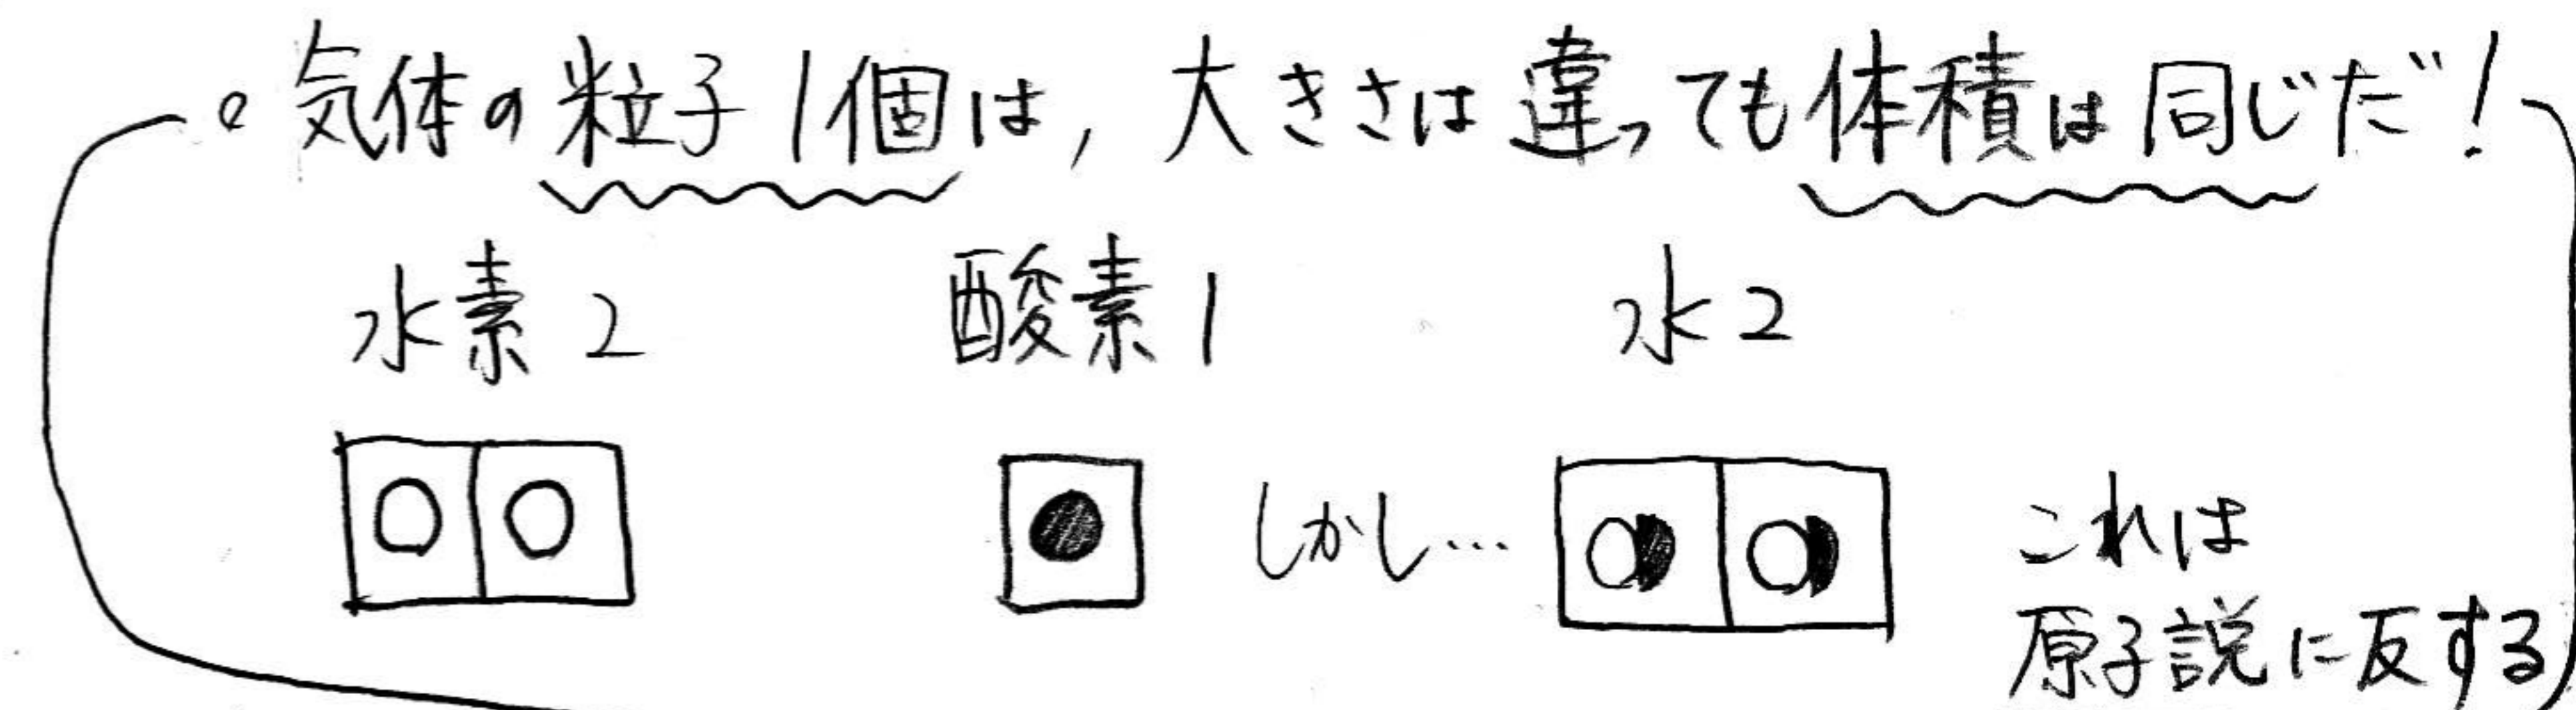 。気体の粒子1個は, 大きさは違っても体積は同じだ!
水素2 酸素1 水2
しかし… これは
原子説に反する